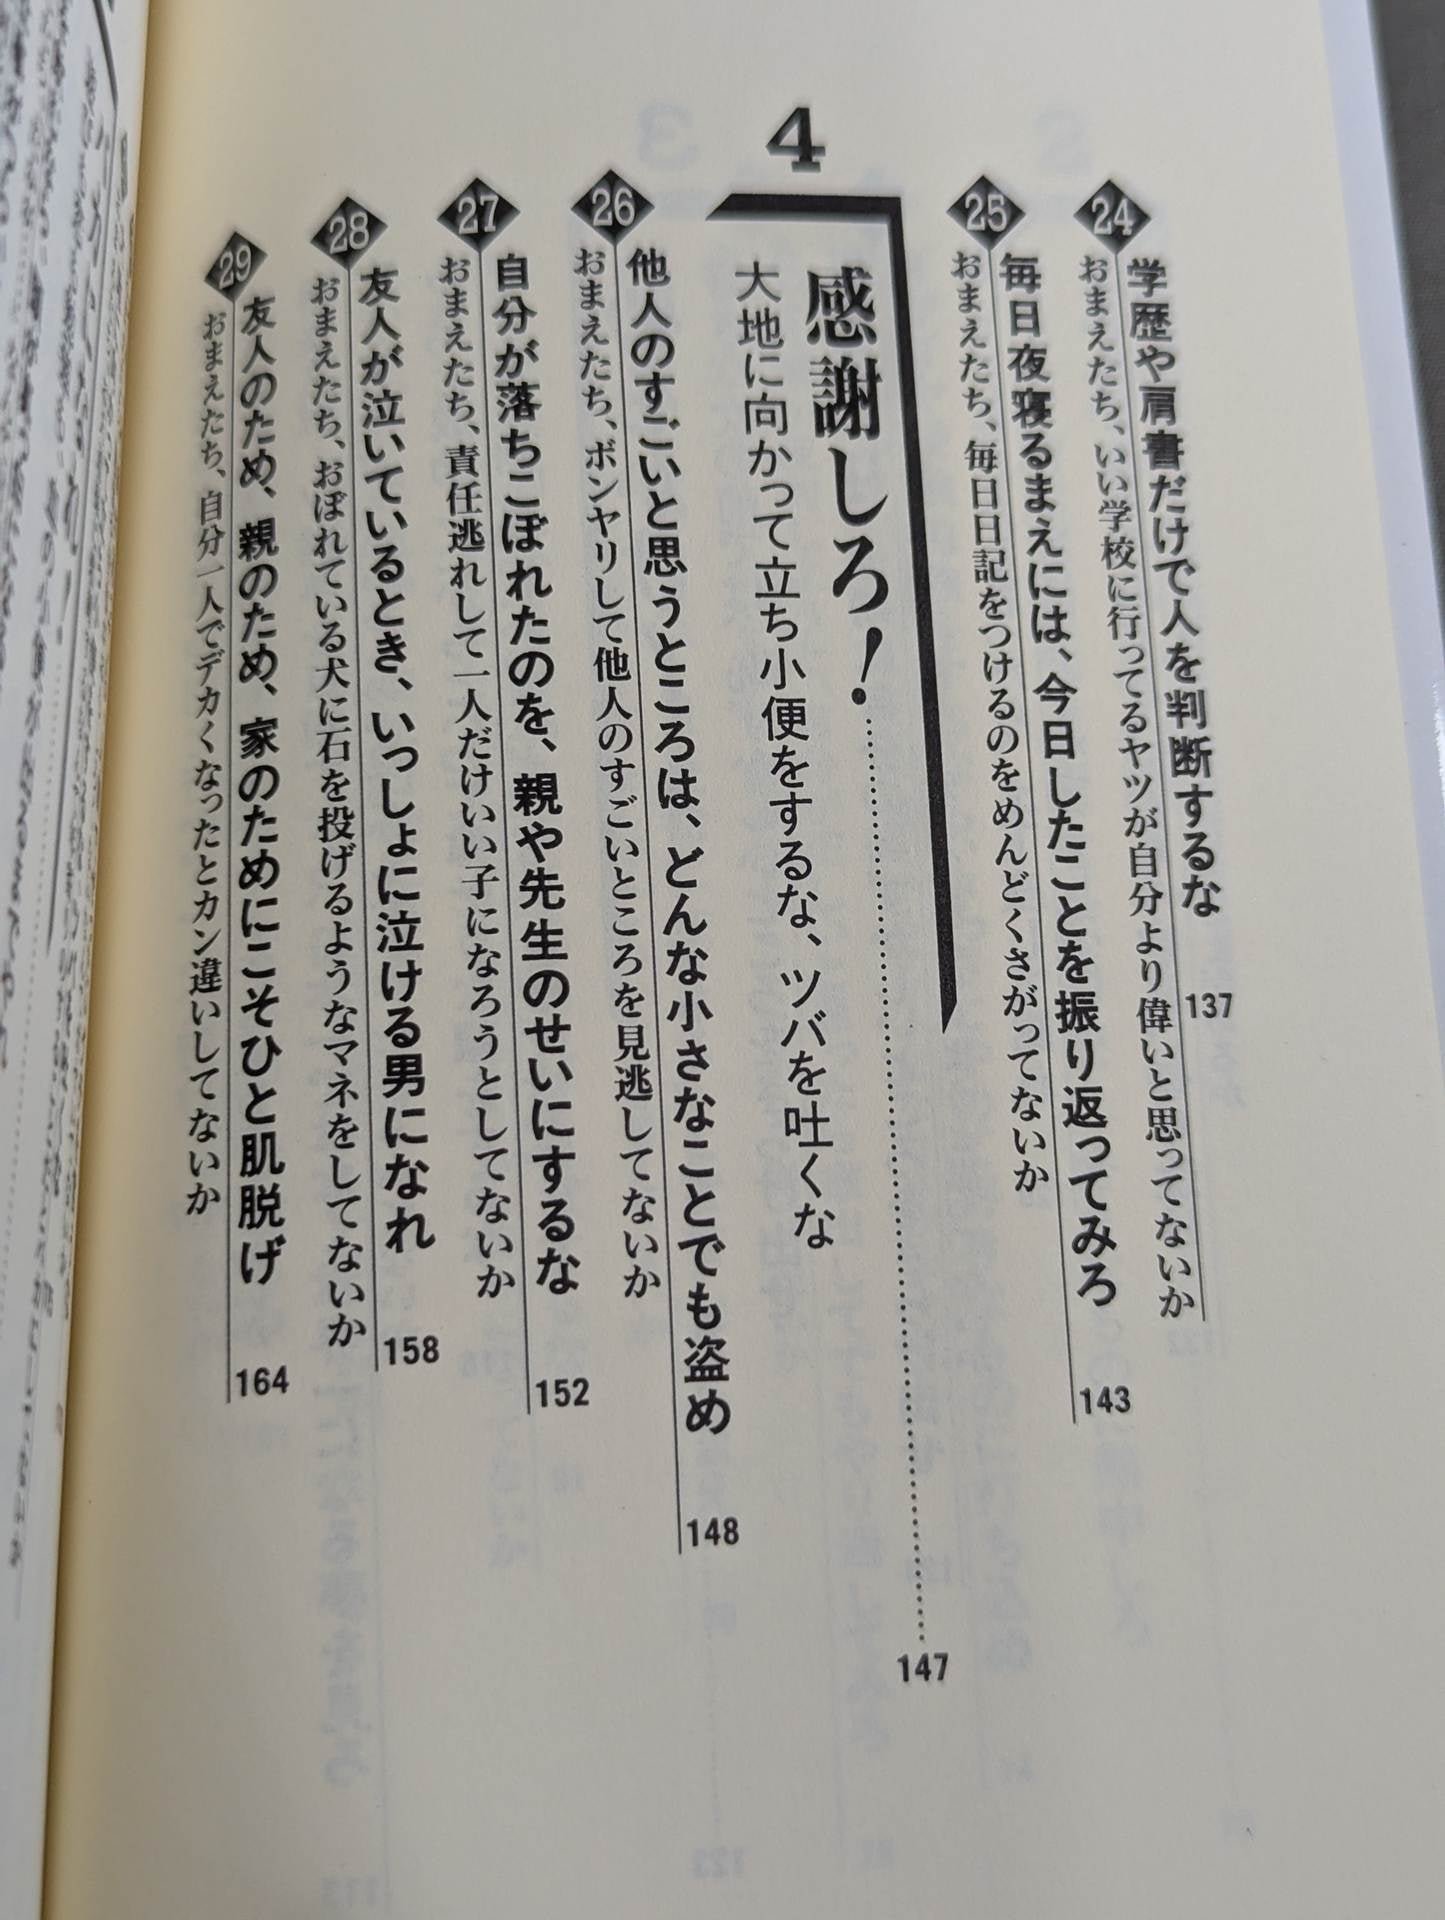 24 学歴や肩書だけで人を判断するな 137
おまえたち、いい学校に行ってるヤツが自分より偉いと思ってないか
25 毎日夜寝るまえには、今日したことを振り返ってみろ 143
おまえたち、毎日日記をつけるのをめんどくさがってないか
4 感謝しろ！ 147
大地に向かって立ち小便をするな、ツバを吐くな
26 他人のすごいと思うところは、どんな小さなことでも盗め 148
おまえたち、ボンヤリして他人のすごいところを見逃してないか
27 自分が落ちこぼれたのを、親や先生のせいにするな 152
おまえたち、責任逃れして一人だけいい子になろうとしてないか
28 友人が泣いているとき、いっしょに泣ける男になれ 158
おまえたち、おぼれている犬に石を投げるようなマネをしてないか
29 友人のため、親のため、家のためにこそひと肌脱げ 164
おまえたち、自分一人でデカくなったとカン違いしてないか